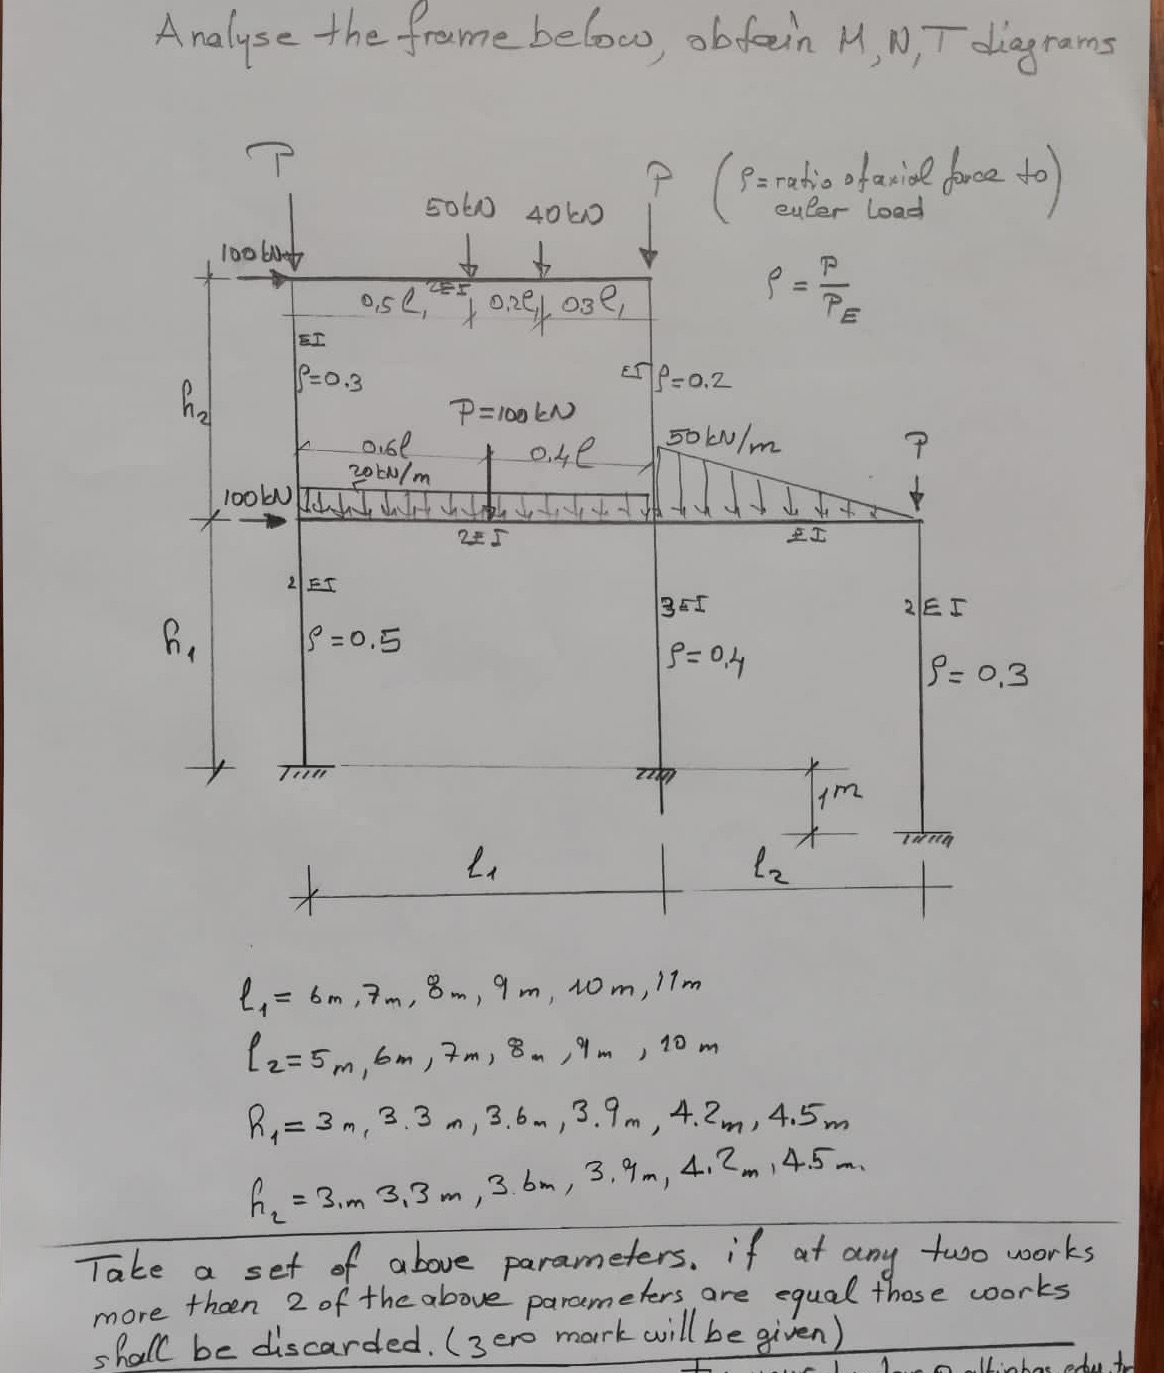 Analyse the frame below, obtain M, N, T diagrams
P
P
(ρ = ratio of axial force to)
euler load
50 kN
40 kN
100 kN
ρ = P / P_E
0,5 l₁
2EI
0,2 l₁
03 l₁
EI
ρ=0.3
EI
ρ=0.2
h₂
P=100 kN
50 kN/m
P
0,6l
0.4l
20 kN/m
100 kN
2EI
EI
2EI
3EI
2EI
h₁
ρ=0.5
ρ=0,4
ρ= 0,3
1m
l₁
l₂
l₁= 6m, 7m, 8m, 9m, 10m, 11m
l₂= 5m, 6m, 7m, 8m, 9m, 10 m
h₁= 3m, 3.3 m, 3.6m, 3.9m, 4.2m, 4.5m
h₂= 3.m 3,3 m, 3.6m, 3.9m, 4.2m, 4.5m.
Take a set of above parameters. if at any two works
more than 2 of the above parameters are equal those works
shall be discarded. (zero mark will be given)